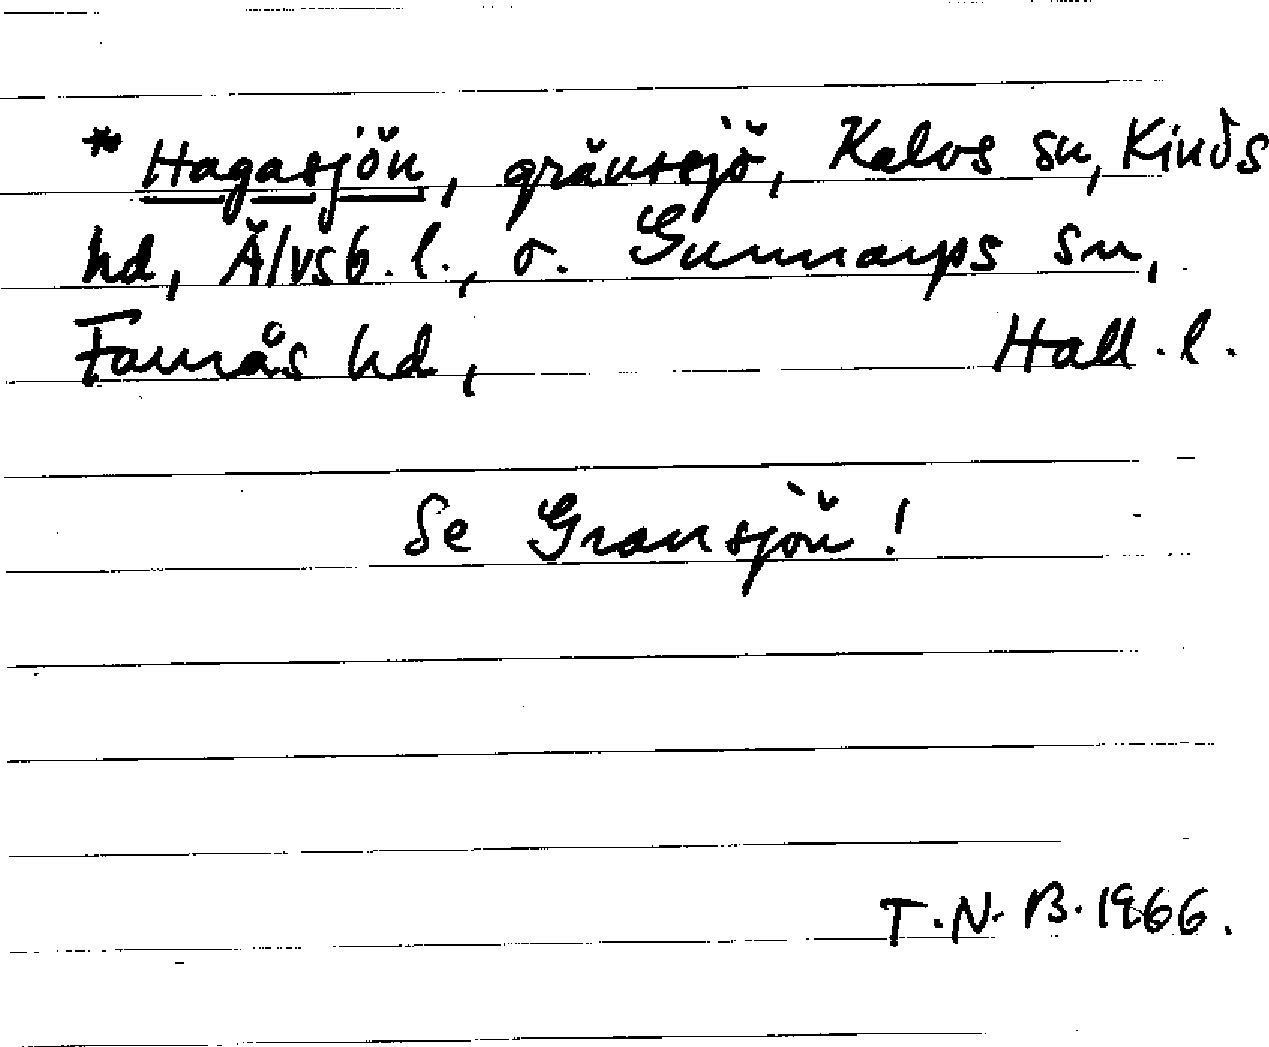 * Hagasjön, gränssjö, Kalvs sn, Kinds
hd, Älvsb. l., o. Gunnarps sn,
Faurås hd, Hall. l.
Se Gransjön!
T.N.B. 1966.